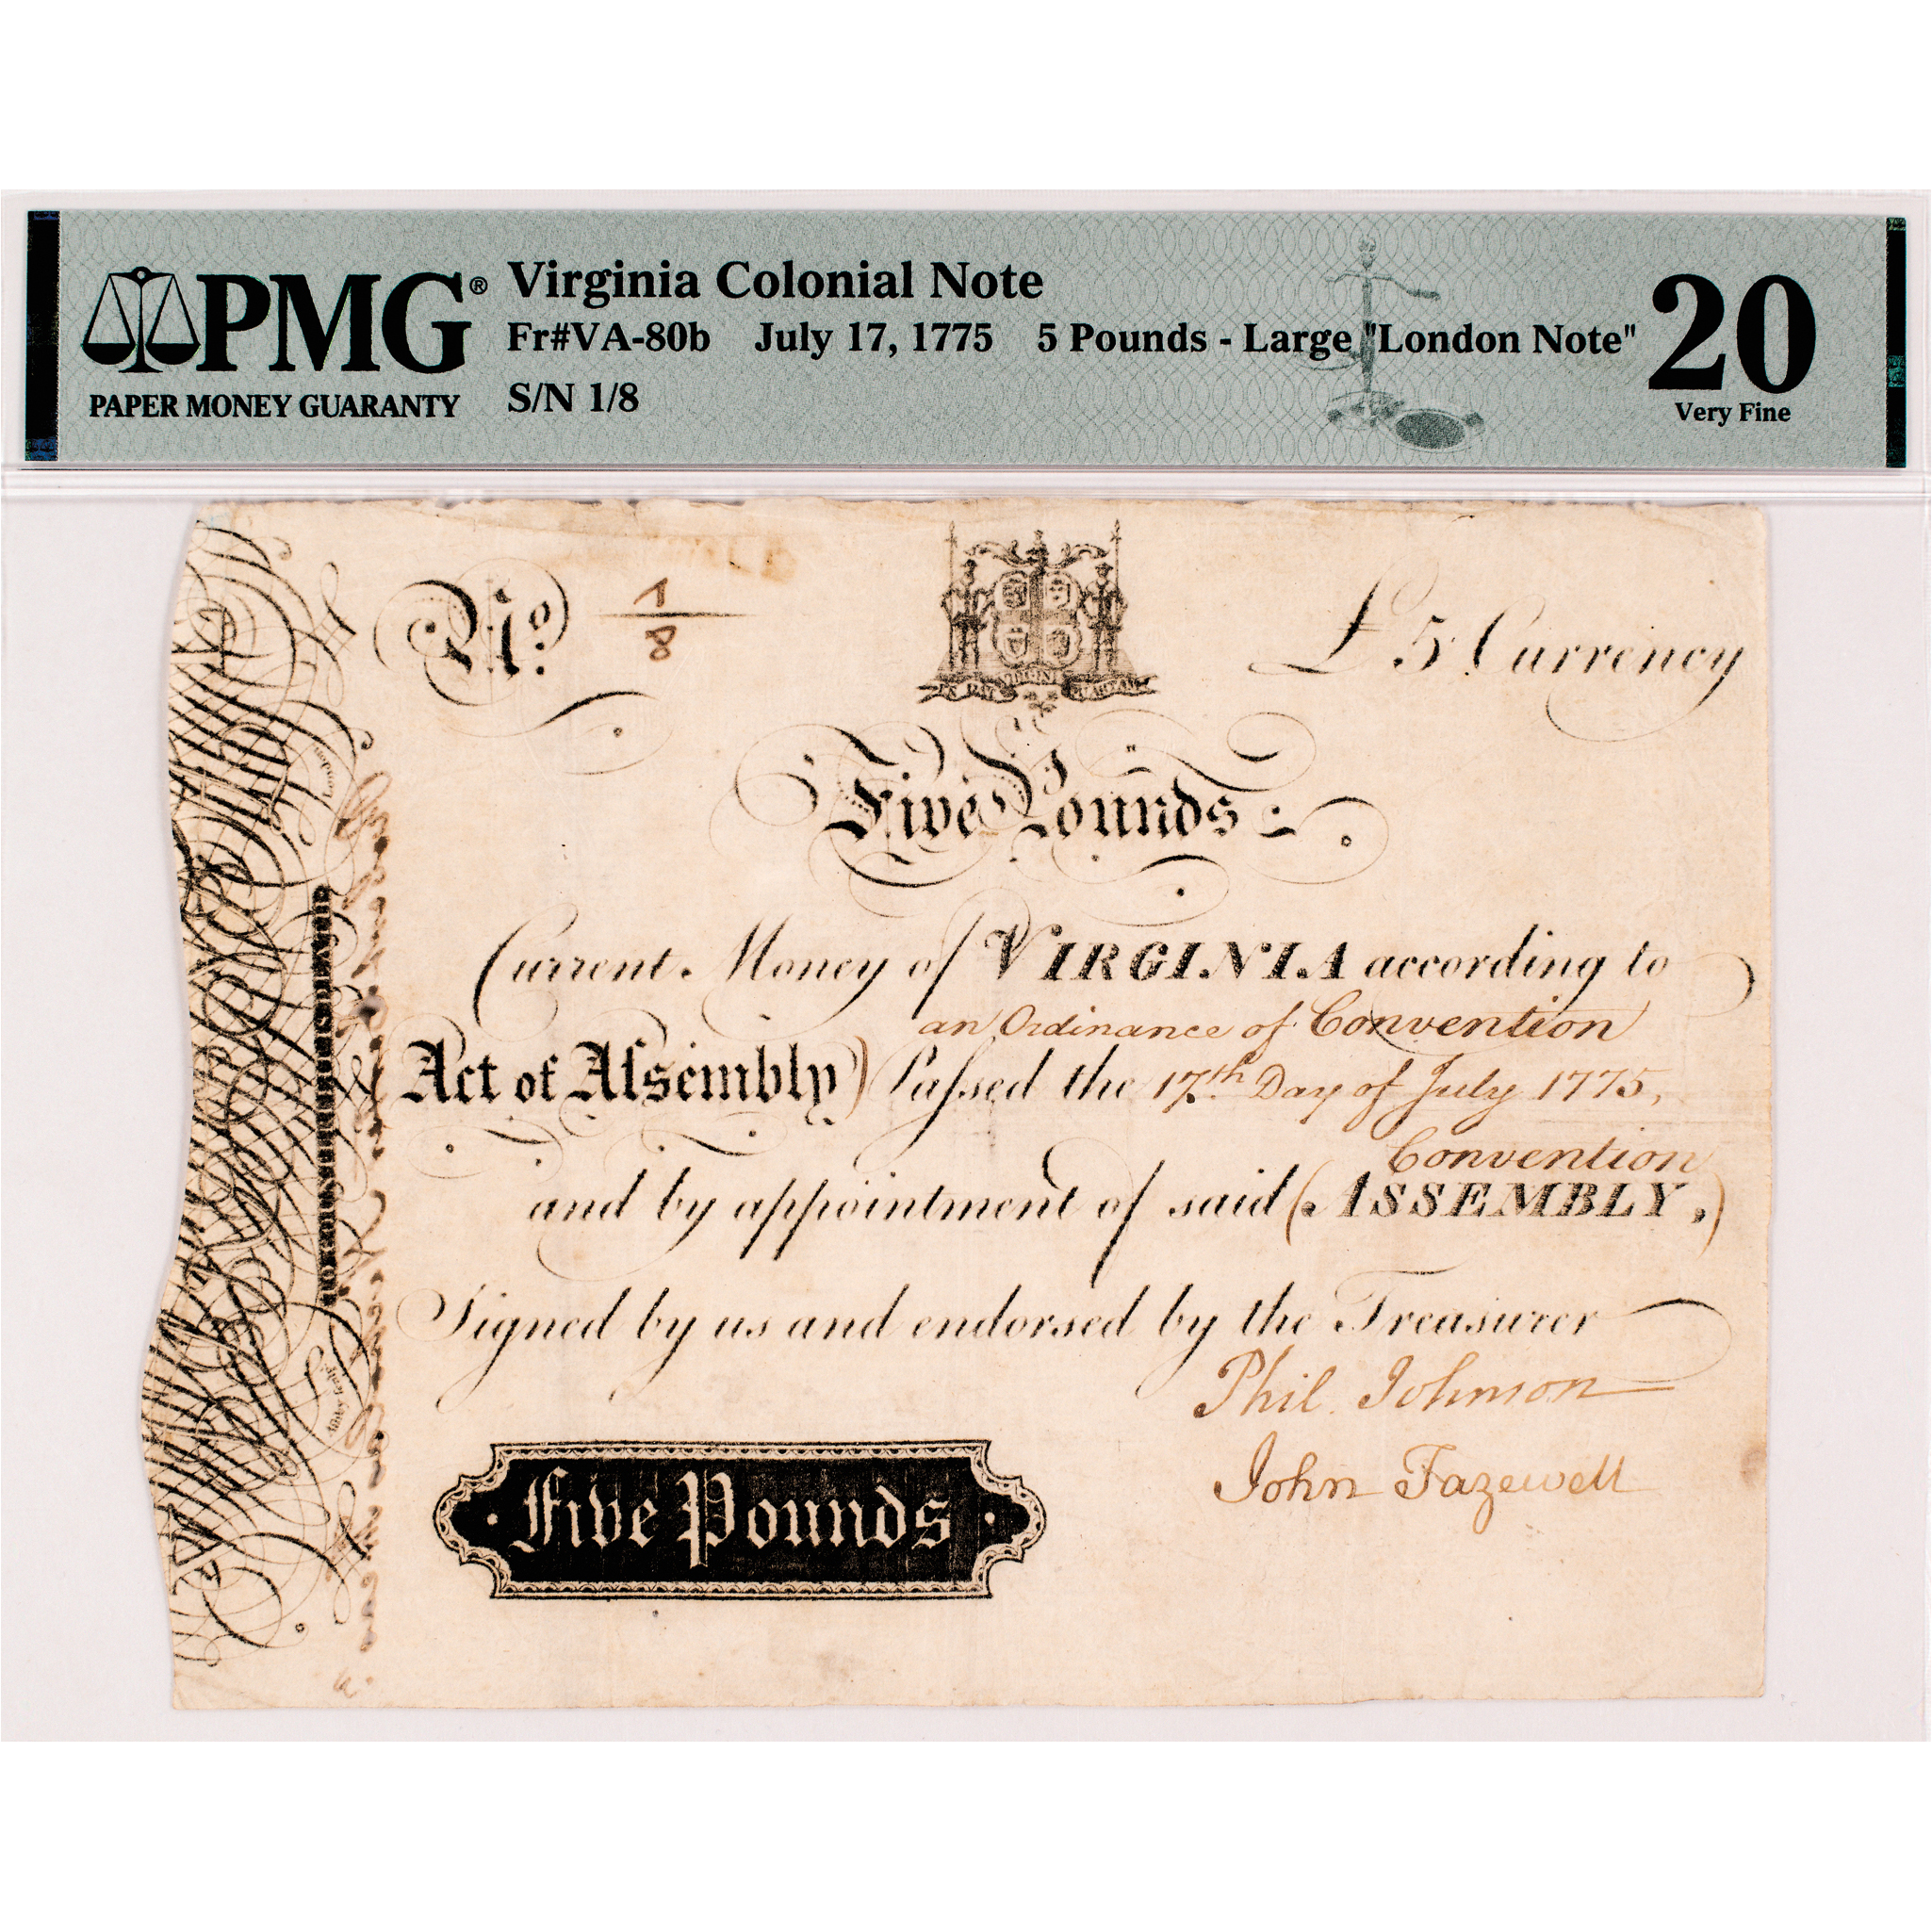 PMG® Virginia Colonial Note
Fr#VA-80b July 17, 1775 5 Pounds - Large "London Note"
PAPER MONEY GUARANTY S/N 1/8
20
Very Fine
No: 1/8
£5 Currency
Five Pounds
Current Money of VIRGINIA according to
an Ordinance of Convention
Act of Aſsembly) Paſsed the 17th Day of July 1775,
Convention
and by appointment of said (ASSEMBLY,)
Signed by us and endorsed by the Treasurer
Phil. Johnson
John Tazewell
Five Pounds